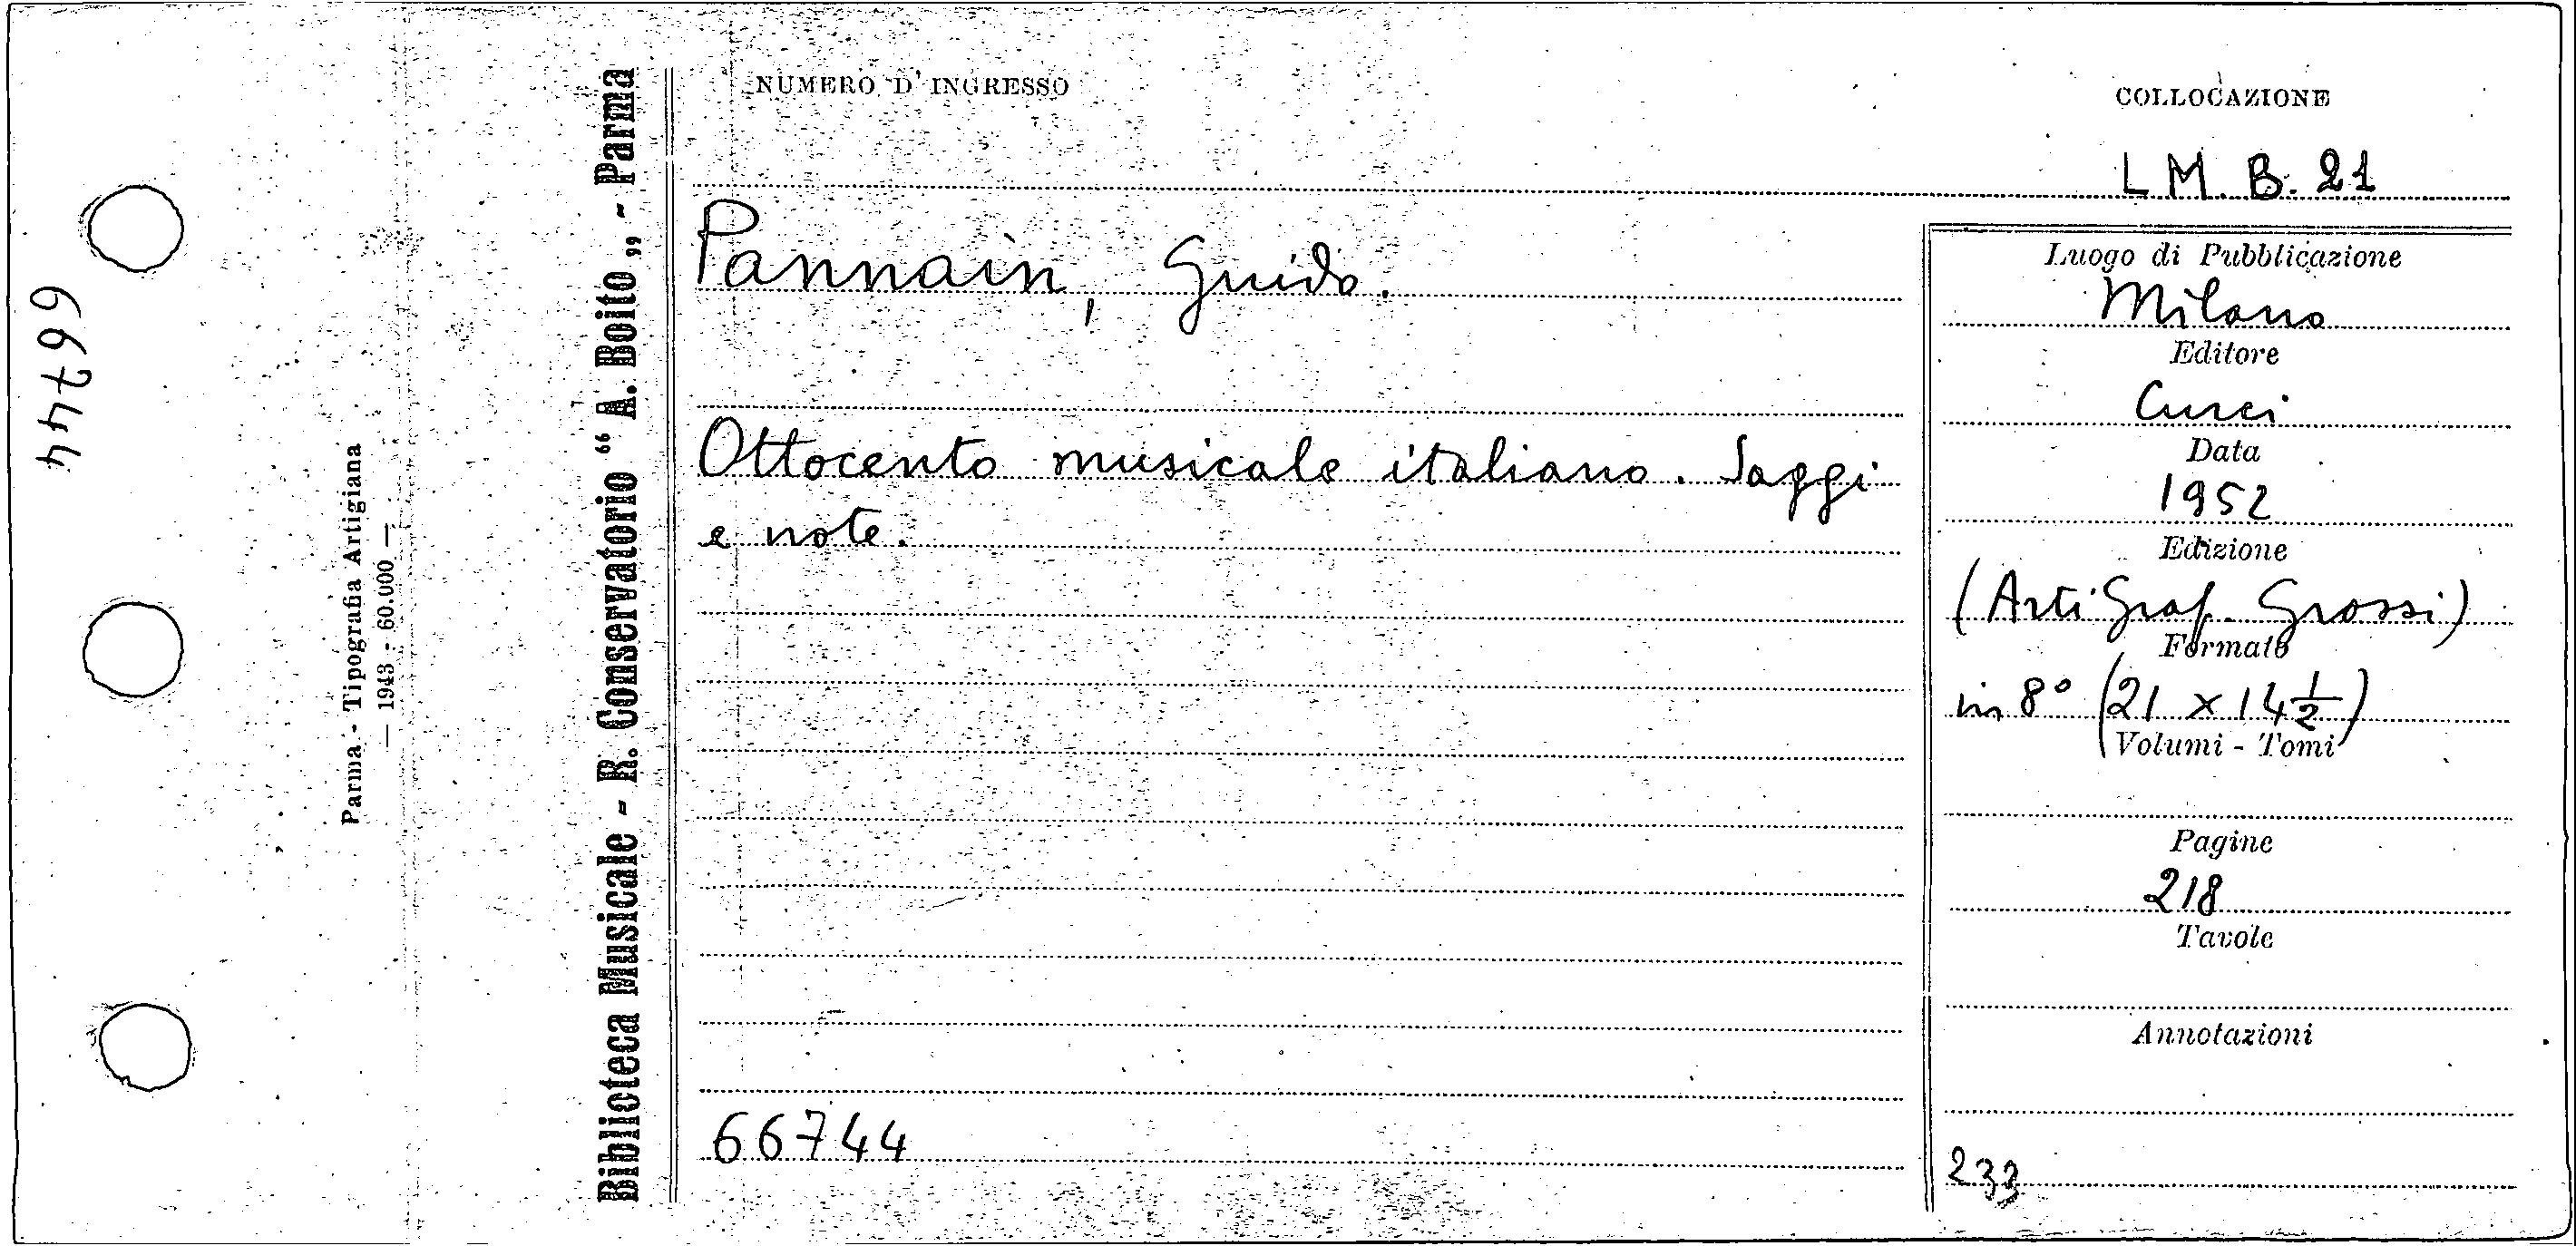 66744
Parma - Tipografia Artigiana
— 1943 - 60.000 —
Biblioteca Musicale - R. Conservatorio “ A. Boito „ - Parma
NUMERO D' INGRESSO
COLLOCAZIONE
L M. B. 21
Pannain, Guido.
Ottocento musicale italiano. Saggi
e note.
66744
Luogo di Pubblicazione
Milano
Editore
Curci
Data
1952
Edizione
(Arti Graf. Grossi)
Formato
in 8° (21 x 14 1/2)
Volumi - Tomi
Pagine
218
Tavole
Annotazioni
233